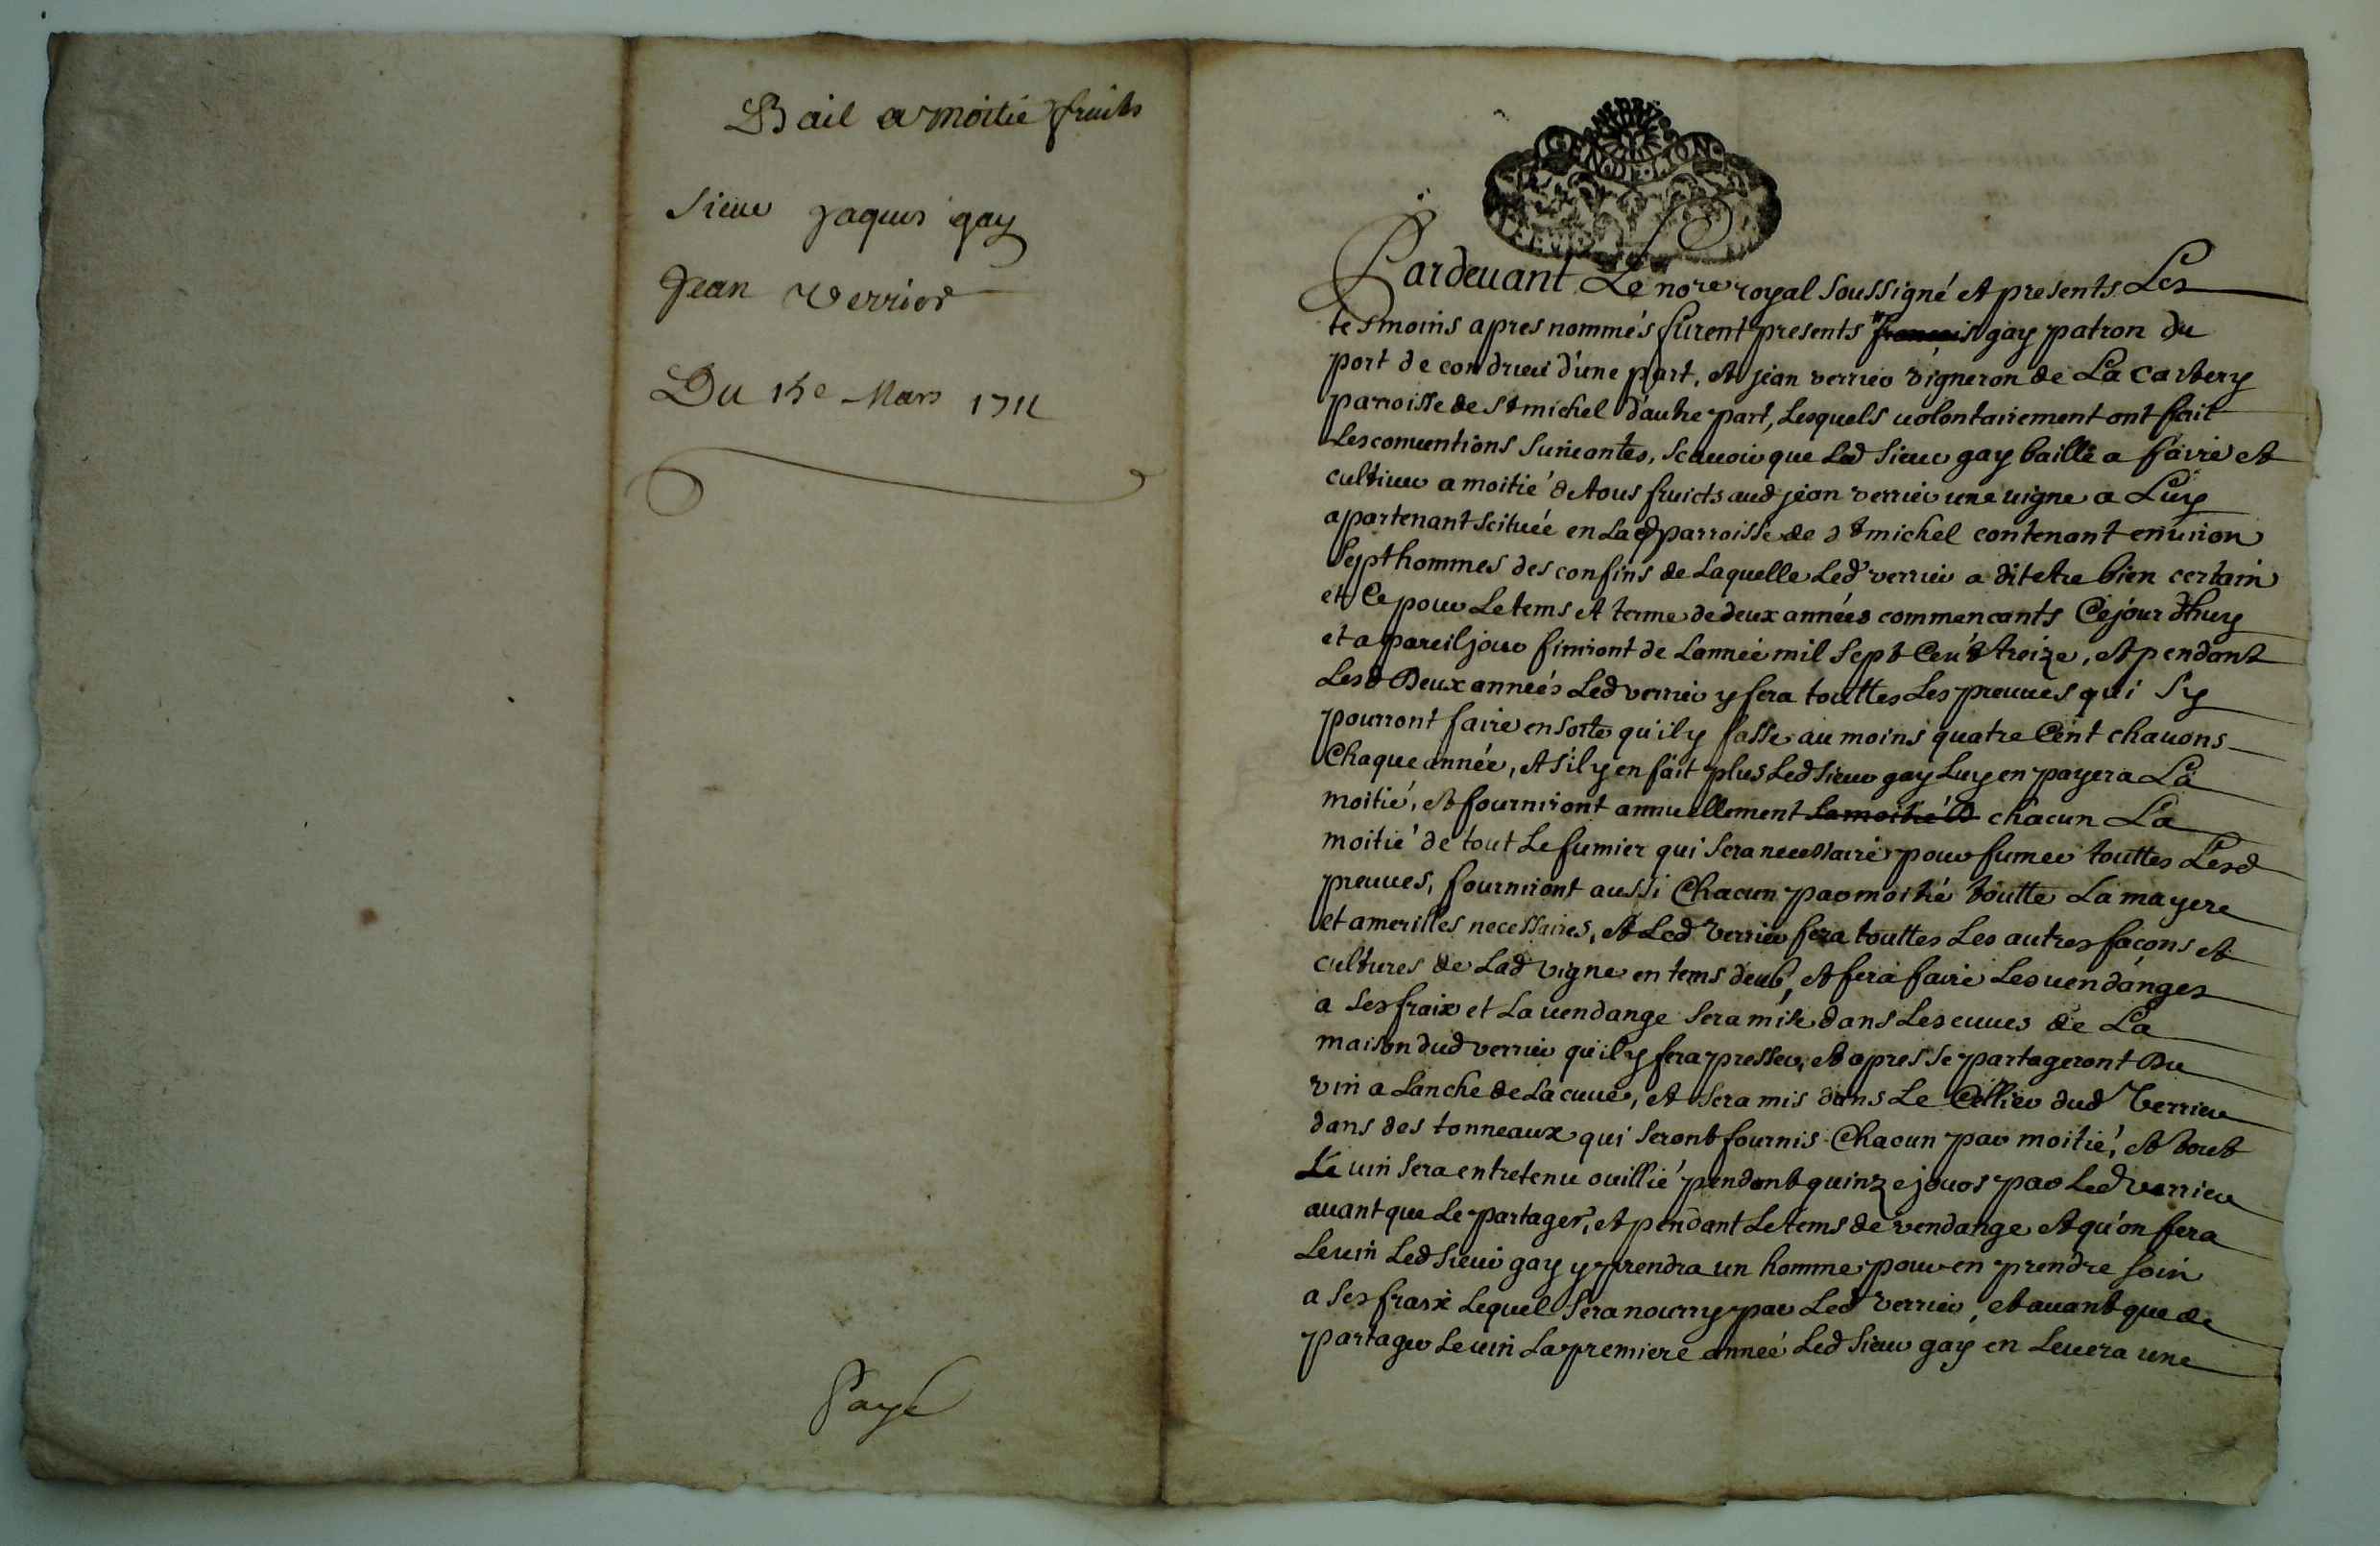 Bail a moitié fruits
Sieur Jaques gay
Jean Verrier
Du 15e Mars 1711
Payé
Pardeuant Le nore royal Soussigné et presents Les
tesmoins apres nommés furent presents francois gay patron du
port de condrieu d'une part, et jean verrier vigneron de La
parroisse de St michel d'autre part, Lesquels uolontairement ont fait
Les conuentions Suiuantes, Scauoir que Led Sieur gay baille a faire et
cultiuer a moitié de tous fruicts aud jean verrier une uigne a Luy
apartenant Scituée en Lad parroisse de St michel contenant enuiron
Sept hommes des confins de Laquelle Led verrier a dit etre bien certain
et Ce pour Le tems et terme de deux années commencants Cejourdhuy
et a pareil jour finiront de Lannée mil Sept Cent treize, et pendant
Lesd Deux années Led verrier y fera touttes Les preuues qui Sy
pourront faire en Sorte qu'il y fasse au moins quatre Cent chauons
Chaque année, et S'il y en fait plus Led Sieur gay Luy en payera La
moitié, et fourniront annuellement La moitié d chacun La
moitié de tout Le fumier qui Sera necessaire pour fumer touttes Lesd
preuues, fourniront aussi Chacun par moitié toutte La mayere
et amerilles necessaires, et Led Verrier fera touttes Les autres façons et
cultures de Lad vigne en tems deub, et fera faire Les uendanges
a Ses fraix et La uendange Sera mise dans Les cuues de La
maison dud verrier qu'il y fera presser, et apres Se partageront Du
vin a Lanche de La cuue, et Sera mis dans Le Cellier dud Verrier
dans des tonneaux qui Seront fournis Chacun par moitié, et tout
Le uin Sera entretenu ouillié pendant quinze jours par Led verrier
auant que Le partager, et pendant Le tems de vendange et qu'on fera
Le uin Led Sieur gay y prendra un homme pour en prendre Soin
a Ses fraix Lequel Sera nourry par Led verrier, et auant que de
partager Le uin La premiere année Led Sieur gay en Leuera une